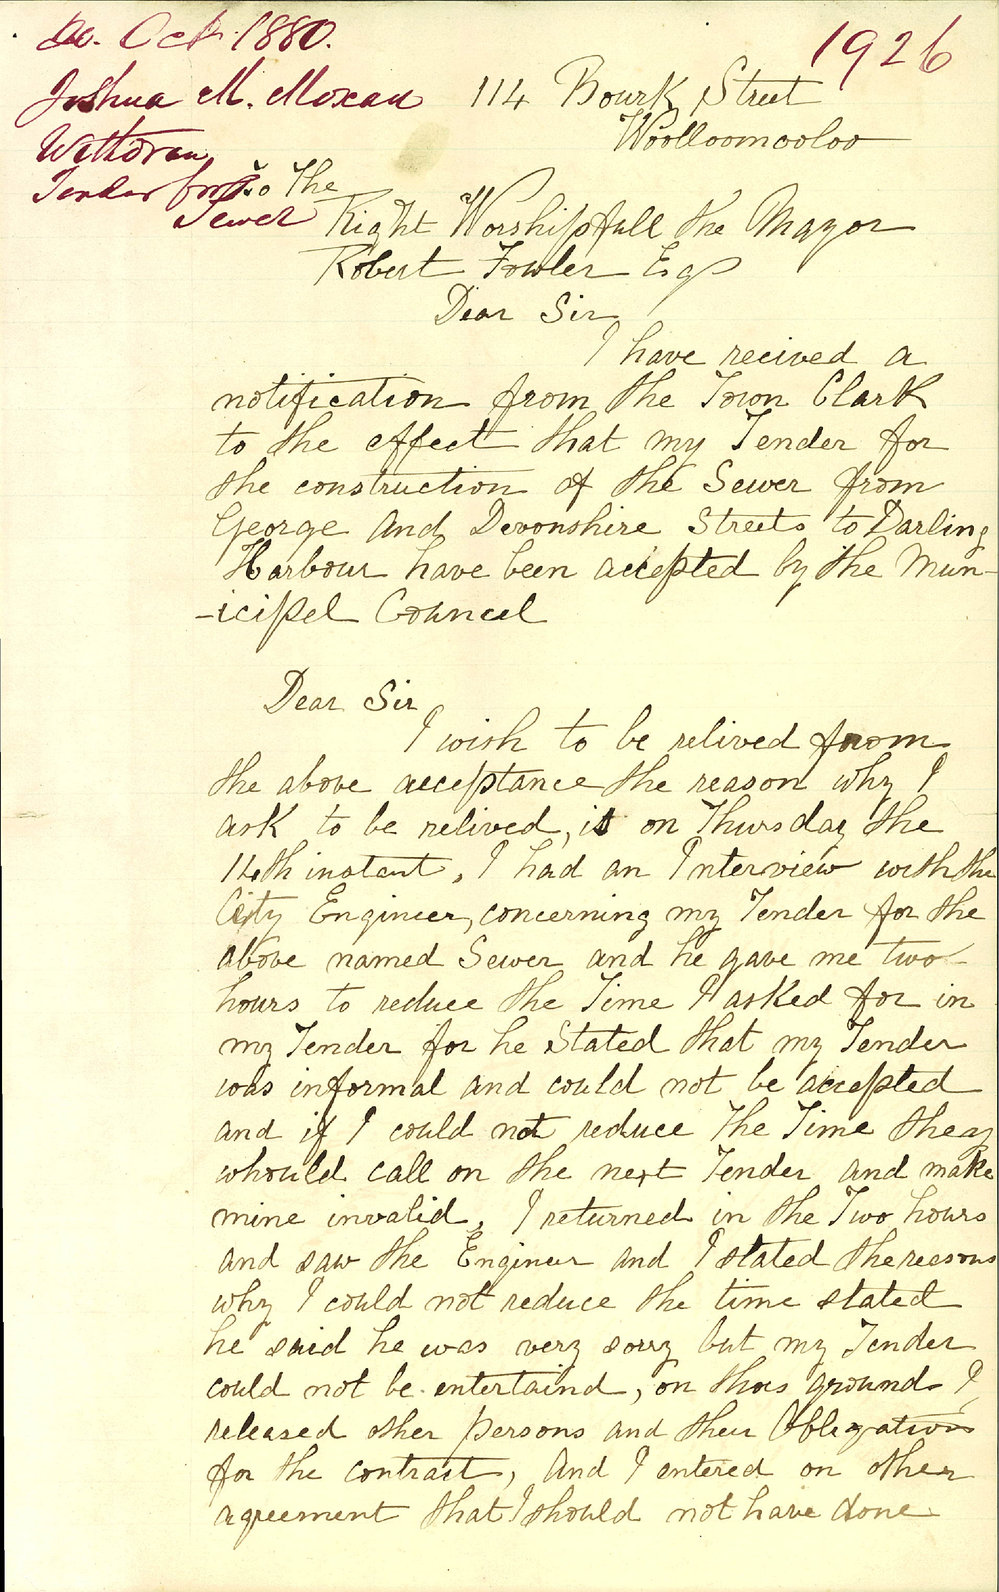 Oct. 1880.
1926
Joshua M. Moxam
114 Bourk Street
Woolloomooloo
Withdraw
Tender for
Sewer
To The
Right Worshipfull the Mayor
Robert Fowler Esq
Dear Sir
I have recived a
notification from the Town Clark
to the effect that my Tender for
the construction of the Sewer from
George and Devonshire Streets to Darling
Harbour have been accepted by the Mun-
-icipel Councel
Dear Sir
I wish to be relived from
the above acceptance the reason why I
ask to be relived, is on Thursday the
14th instant, I had an Interview with the
City Engineer, concerning my Tender for the
above named Sewer and he gave me two
hours to reduce the Time I asked for in
my Tender for he Stated that my Tender
was informal and could not be accepted
and if I could not reduce the Time theay
whould call on the next Tender and make
mine invalid, I returned in the Two hours
and saw the Engineer and I stated the reasons
why I could not reduce the time stated
he said he was very sorry but my Tender
could not be entertaind, on thos ground I
released other persons and their Obligations
for the contract, And I entered on other
agreement that I should not have done